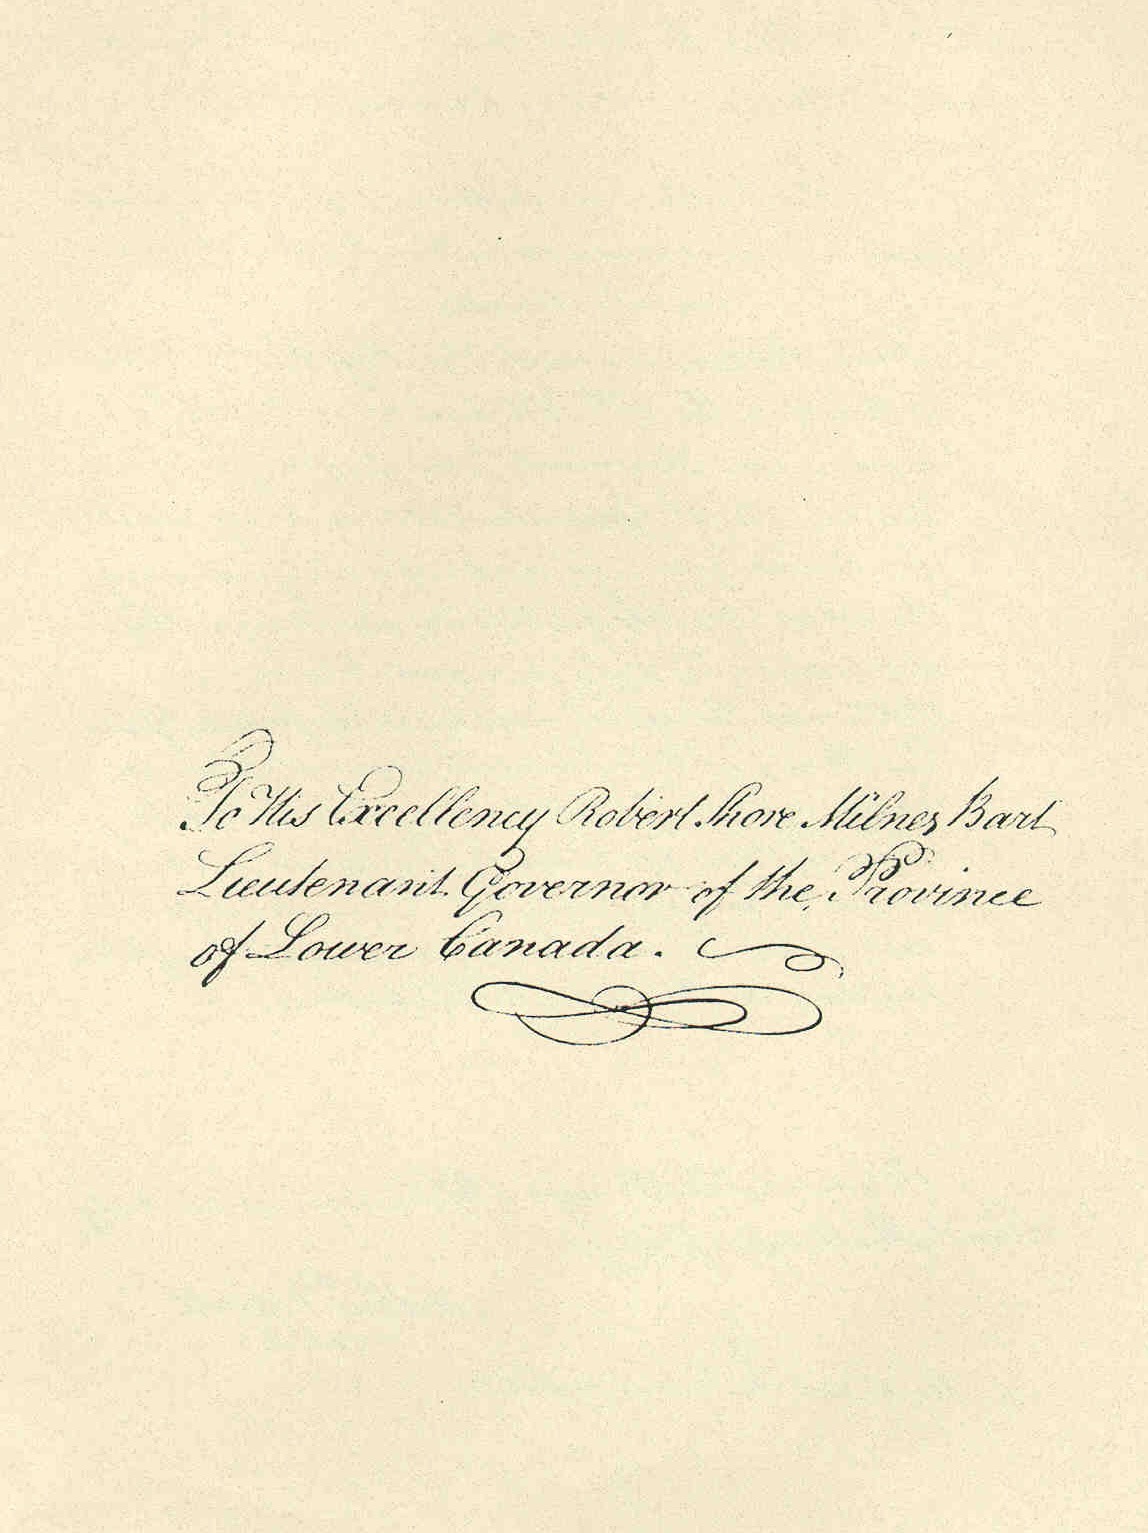 To His Excellency Robert Shore Milnes Bart
Lieutenant Governor of the Province
of Lower Canada.